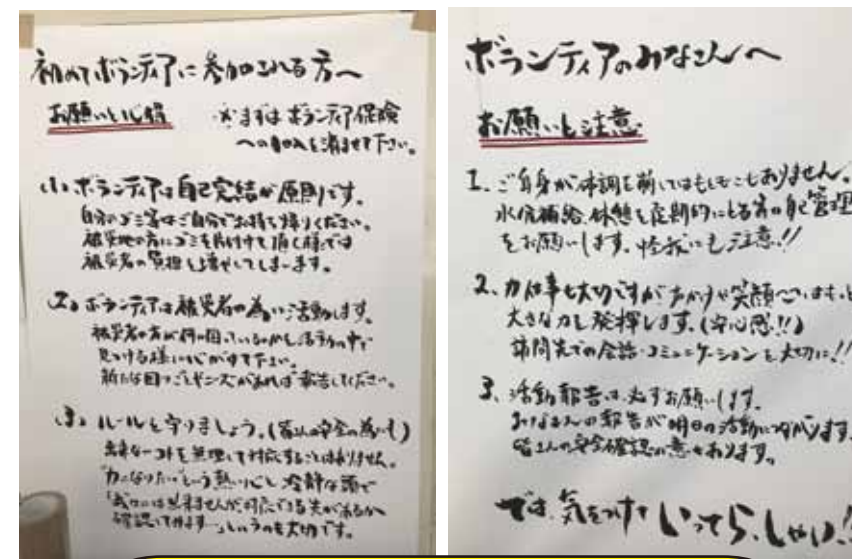 初めてボランティアに参加される方へ
お願いと心得
※まずはボランティア保険
への加入を済ませて下さい。
(1)、ボランティアは自己完結が原則です。
自分のゴミ等はご自分でお持ち帰りください。
被災地の方にゴミを片付けて頂く様では
被災者の負担を増やしてしまいます。
(2)、ボランティアは被災者の為に活動します。
被災者の方が何に困っているのかを活動の中で
見つける様に心がけて下さい。
新たな困りごとやニーズがあれば報告してください。
(3)、ルールを守りましょう。(皆さんの安全の為にも)
出来ないコトを無理して対応することはありません。
"力になりたい"という熱い心と冷静な頭で
には出来ませんが対応できる先があるか
確認してみます…」というのも大切です。
ボランティアのみなさんへ
お願いと注意
1、ご自身が体調を崩してはもともこもありません。
水分補給、休憩を定期的にとる等の自己管理
をお願いします。怪我にも注意!!
2、力仕事も大切ですが声かけや笑顔
大きな力を発揮します。(安心感!!)
訪問先での会話・コミュニケーションを大切に!!
3、活動報告は必ずお願いします。
みなさんの報告が明日の活動につながります。
皆さんの安全確認の意もあります。
では、気をつけていってらっしゃい!!